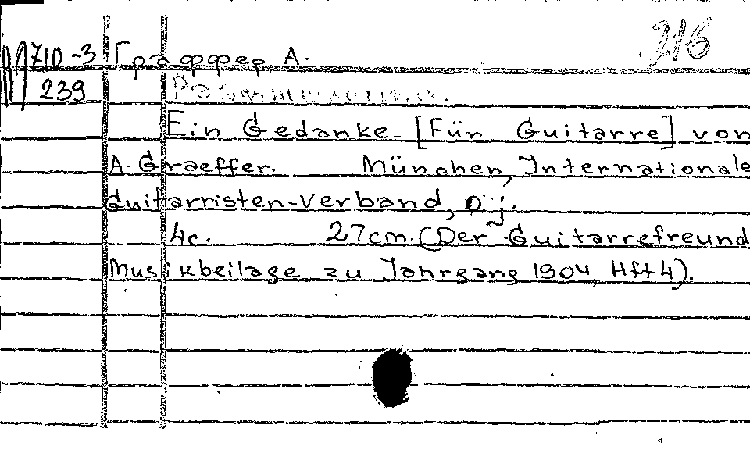 216
М 710-3 Граффер А.
239 Размышление.
Ein Gedanke. [Für Guitarre] von
A. Graeffer. München, Internationale
Guitarristen-Verband, o. j.
4c. 27cm. (Der Guitarrefreund
Musikbeilage zu Jahrgang 1904, Hft 4).